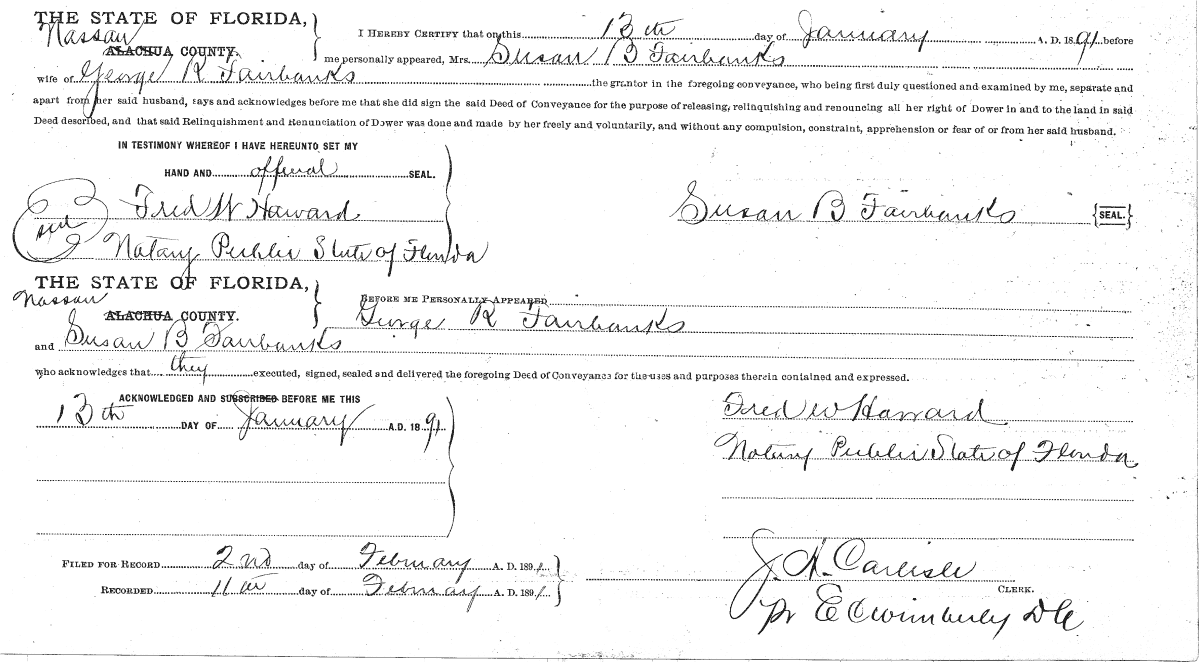 THE STATE OF FLORIDA,
Nassau
ALACHUA COUNTY.
I HEREBY CERTIFY that on this 13th day of January A. D. 1891, before
me personally appeared, Mrs. Susan B Fairbanks
wife of George R Fairbanks the grantor in the foregoing conveyance, who being first duly questioned and examined by me, separate and
apart from her said husband, says and acknowledges before me that she did sign the said Deed of Conveyance for the purpose of releasing, relinquishing and renouncing all her right of Dower in and to the land in said
Deed described, and that said Relinquishment and Renunciation of Dower was done and made by her freely and voluntarily, and without any compulsion, constraint, apprehension or fear of or from her said husband.
IN TESTIMONY WHEREOF I HAVE HEREUNTO SET MY
HAND AND official SEAL.
Seal Fred W Howard
Susan B Fairbanks {SEAL.}
Notary Public State of Florida
THE STATE OF FLORIDA,
Nassau
ALACHUA COUNTY.
BEFORE ME PERSONALLY APPEARED
George R Fairbanks
and Susan B Fairbanks
who acknowledges that they executed, signed, sealed and delivered the foregoing Deed of Conveyance for the uses and purposes therein contained and expressed.
ACKNOWLEDGED AND SUBSCRIBED BEFORE ME THIS
13th DAY OF January A.D. 1891.
Fred W Howard
Notary Public State of Florida
FILED FOR RECORD 2nd day of February A. D. 1891.
RECORDED 11th day of February A. D. 1891.
J. H. Carlisle
CLERK.
pr E C Wimberly DC